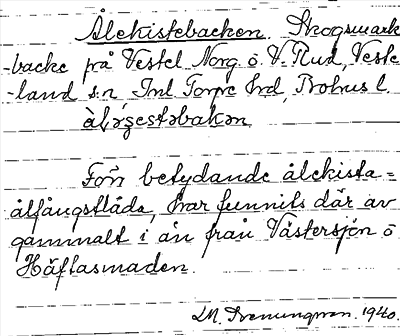 Ålekistebacken. Skogsmark
-backe på Vestel Norg. ö. V. Rud, Veste
-land s:n, Inl Torpe hrd, Bohus l.
Förr betydande ålekista =
ålfångstlåda, har funnits där av
gammalt i ån från Västersjön ö
Häftasmaden.
1940.